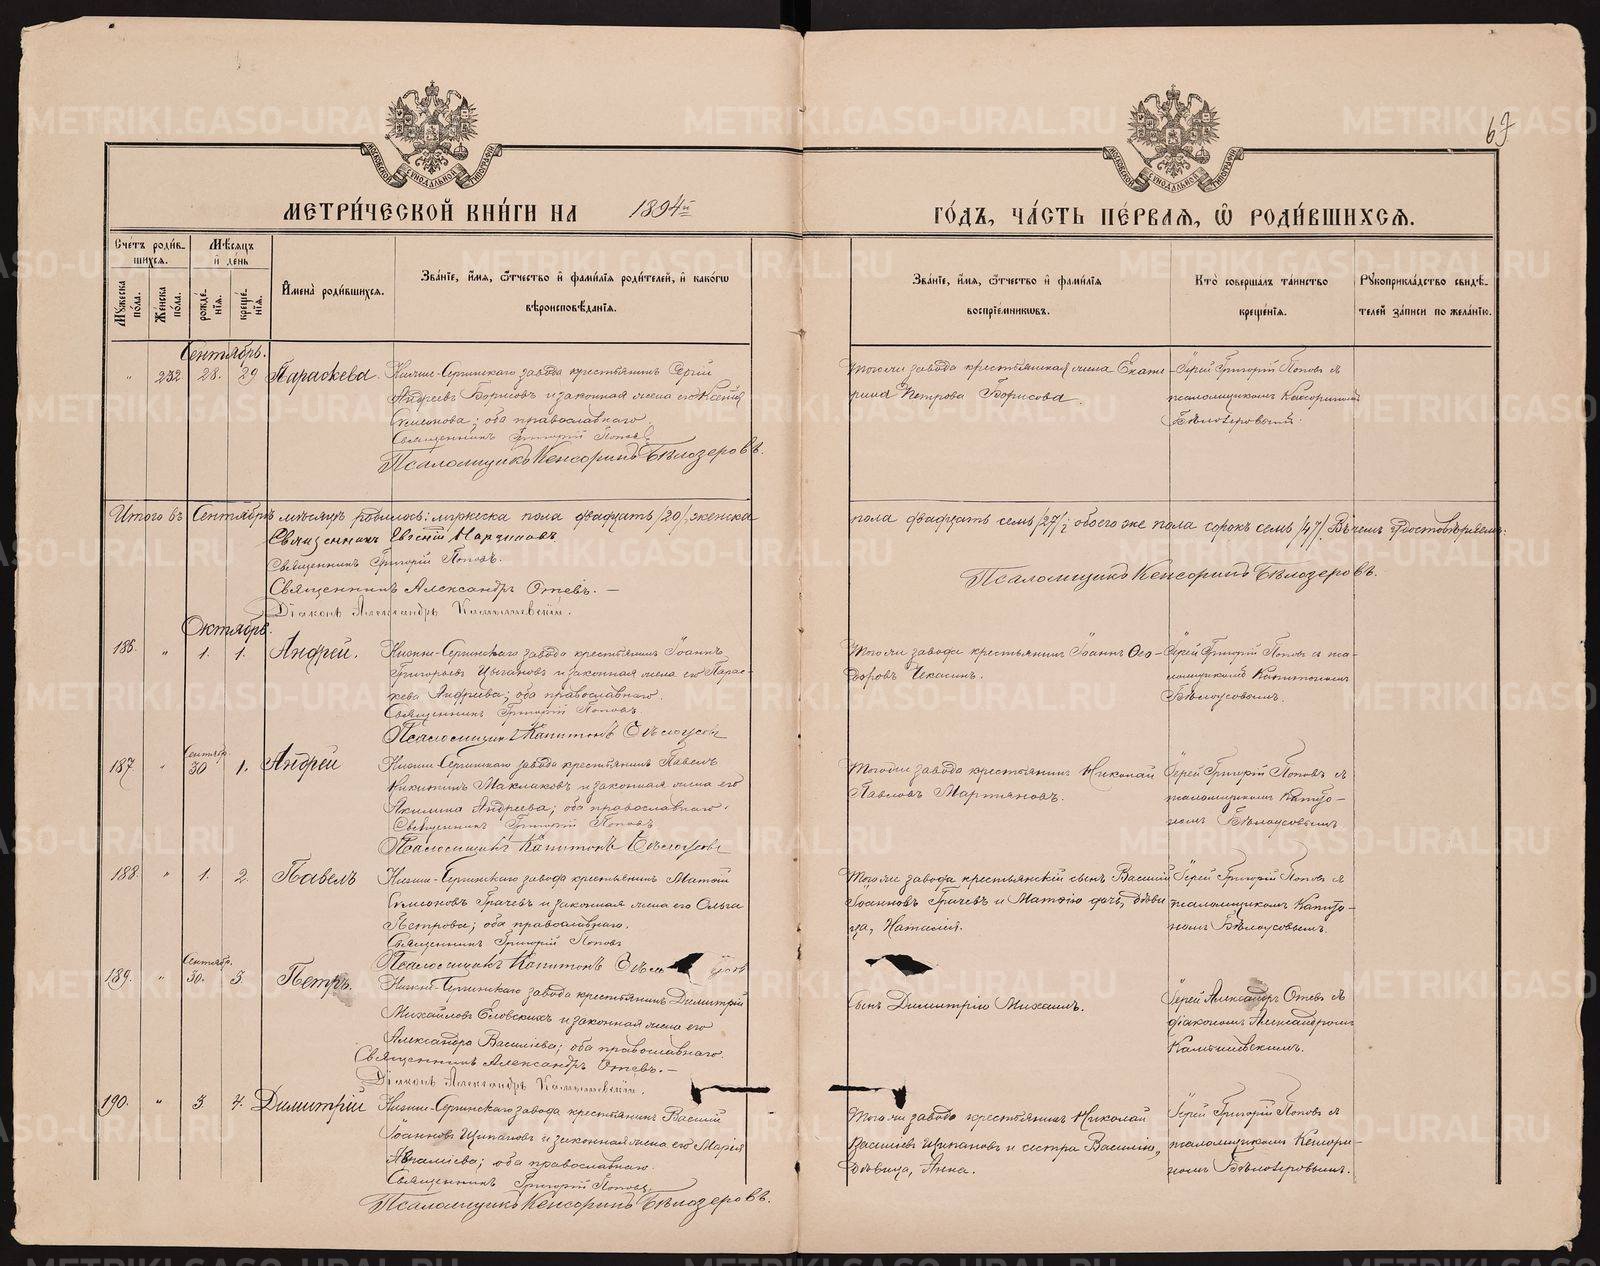 67
МЕТРИ́ЧЕСКОЙ КНИ́ГИ НА 1894й
ГО́ДЪ, ЧА́СТЬ ПЕ́РВАЯ, Ѽ РОДИ́ВШИХСЯ.
МОСКОВСКОЙ СѴНОДАЛЬНОЙ ТИПОГРАФІИ
МОСКОВСКОЙ СѴНОДАЛЬНОЙ ТИПОГРАФІИ
Счетъ родив-
шихся.
Мужеска пола.
Женска пола.
Мѣсяцъ и день
рожде-нія.
креще-нія.
Имена родившихся.
Званіе, имя, ѿтчество и фамилія родителей, и какогѡ
вѣроисповѣданія.
Званіе, имя, ѿтчество и фамилія
воспріемникѡвъ.
Кто совершалъ таинство
крещенія.
Рукоприкладство свидѣ-
телей записи по желанію.
Сентябрь.
" 232 28. 29 Параскева.
Нижне-Сергинскаго завода крестьянинъ Сергій
Андреевъ Борисовъ и законная жена его Ксенія
Симонова; оба православнаго
Священникъ Григорій Поповъ
Псаломщикъ Кенсоринъ Бѣлозеровъ.
Того же завода крестьянская жена Екате-
рина Петрова Борисова.
Іерей Григорій Поповъ съ
псаломщикомъ Кенсориномъ
Бѣлозеровымъ.
Итого въ Сентябрѣ мѣсяцѣ родилось: мужеска пола двадцать /20/, женска
пола двадцать семь /27/; обоего же пола сорокъ семь /47/. Въ чемъ удостовѣряемъ:
Священникъ Евгеній
Священникъ Григорій Поповъ.
Священникъ Александръ Отевъ. —
Діаконъ Александръ Камышевскій.
Псаломщикъ Кенсоринъ Бѣлозеровъ.
Октябрь.
186. " 1. 1. Андрей.
Нижне-Сергинскаго завода крестьянинъ Іоаннъ
Григорьевъ Цыгановъ и законная жена его Парас-
кева Андреева; оба православнаго.
Священникъ Григорій Поповъ.
Псаломщикъ Капитонъ Бѣлоусовъ
Того же завода крестьянинъ Іоаннъ Ѳео-
доровъ
Іерей Григорій Поповъ съ пса-
ломщикомъ Капитономъ
Бѣлоусовымъ.
187. " Сентябр. 30 1. Андрей
Нижне-Сергинскаго завода крестьянинъ Павелъ
Никитинъ Маклаковъ и законная жена его
Акилина Андреева; оба православнаго.
Священникъ Григорій Поповъ
Псаломщикъ Капитонъ Бѣлоусовъ
Того же завода крестьянинъ Николай
Павловъ Мартьяновъ.
Іерей Григорій Поповъ съ
псаломщикомъ Капито-
номъ Бѣлоусовымъ
188. " 1. 2. Павелъ
Нижне-Сергинскаго завода крестьянинъ Матѳій
Симоновъ Грачевъ и законная жена его Ольга
Петрова; оба православнаго.
Священникъ Григорій Поповъ
Псаломщикъ Капитонъ
Того же завода крестьянскій сынъ Василій
Іоанновъ Грачевъ и Матѳія дочь, дѣви-
ца, Наталія.
Іерей Григорій Поповъ съ
псаломщикомъ Капито-
номъ Бѣлоусовымъ.
189. " Сентябр. 30. 3. Петръ.
Нижне-Сергинскаго завода крестьянинъ Димитрій
Михайловъ Еловскихъ и законная жена его
Александра Василіева; оба православнаго.
Священникъ Александръ Отевъ. —
Діаконъ Александръ Камышевскій.
Сынъ Димитрія Михаилъ.
Іерей Александръ Отевъ съ
діакономъ Александромъ
Камышевскимъ.
190. " 3. 4. Димитрій
Нижне-Сергинскаго завода крестьянинъ Василій
Іоанновъ Щипановъ и законная жена его Марія
оба православнаго.
Священникъ Григорій Поповъ.
Псаломщикъ Кенсоринъ Бѣлозеровъ.
Того же завода крестьянинъ Николай
Василіевъ Щипановъ и сестра Василія,
дѣвица, Анна.
Іерей Григорій Поповъ съ
псаломщикомъ Кенсори-
номъ Бѣлозеровымъ.
METRIKI.GASO-URAL.RU